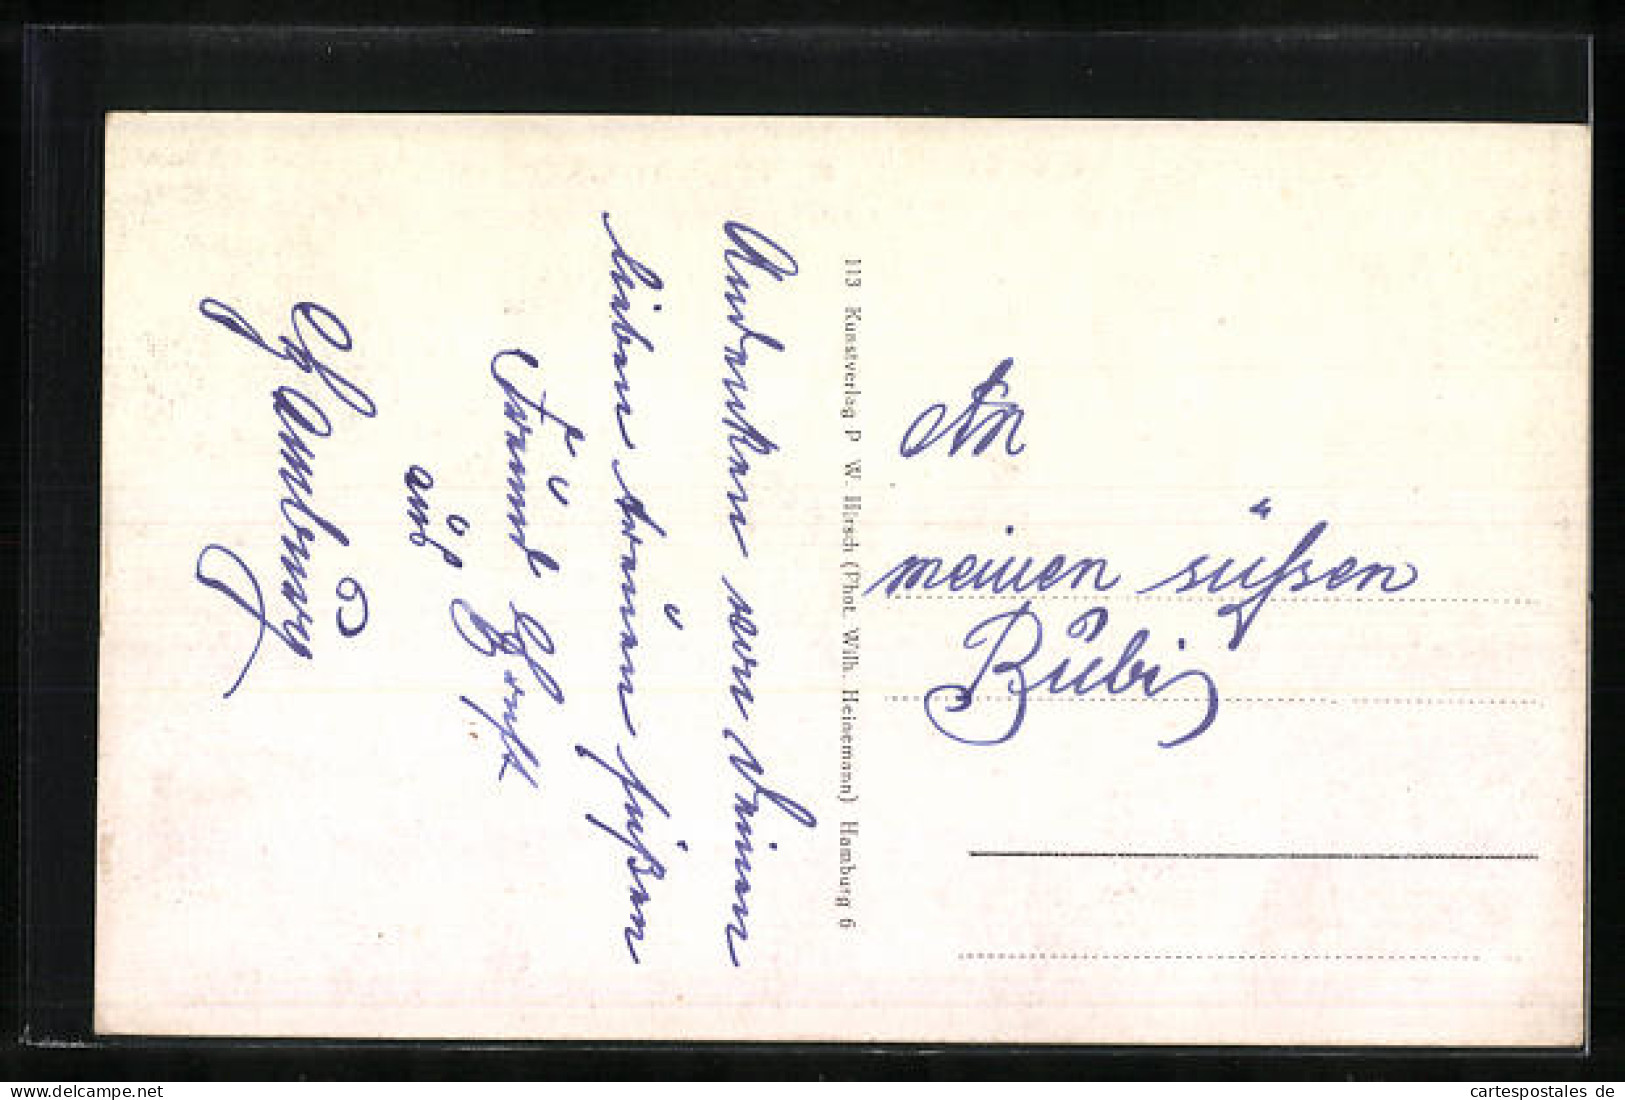 Andenken von Deinen
lieben treuen süßen
Freund Horst
aus
Hamburg
113 Kunstverlag P. W. Hirsch (Phot. Wilh. Heinemann) Hamburg 6
An
meinen süßen
Bubi
cartespostales de